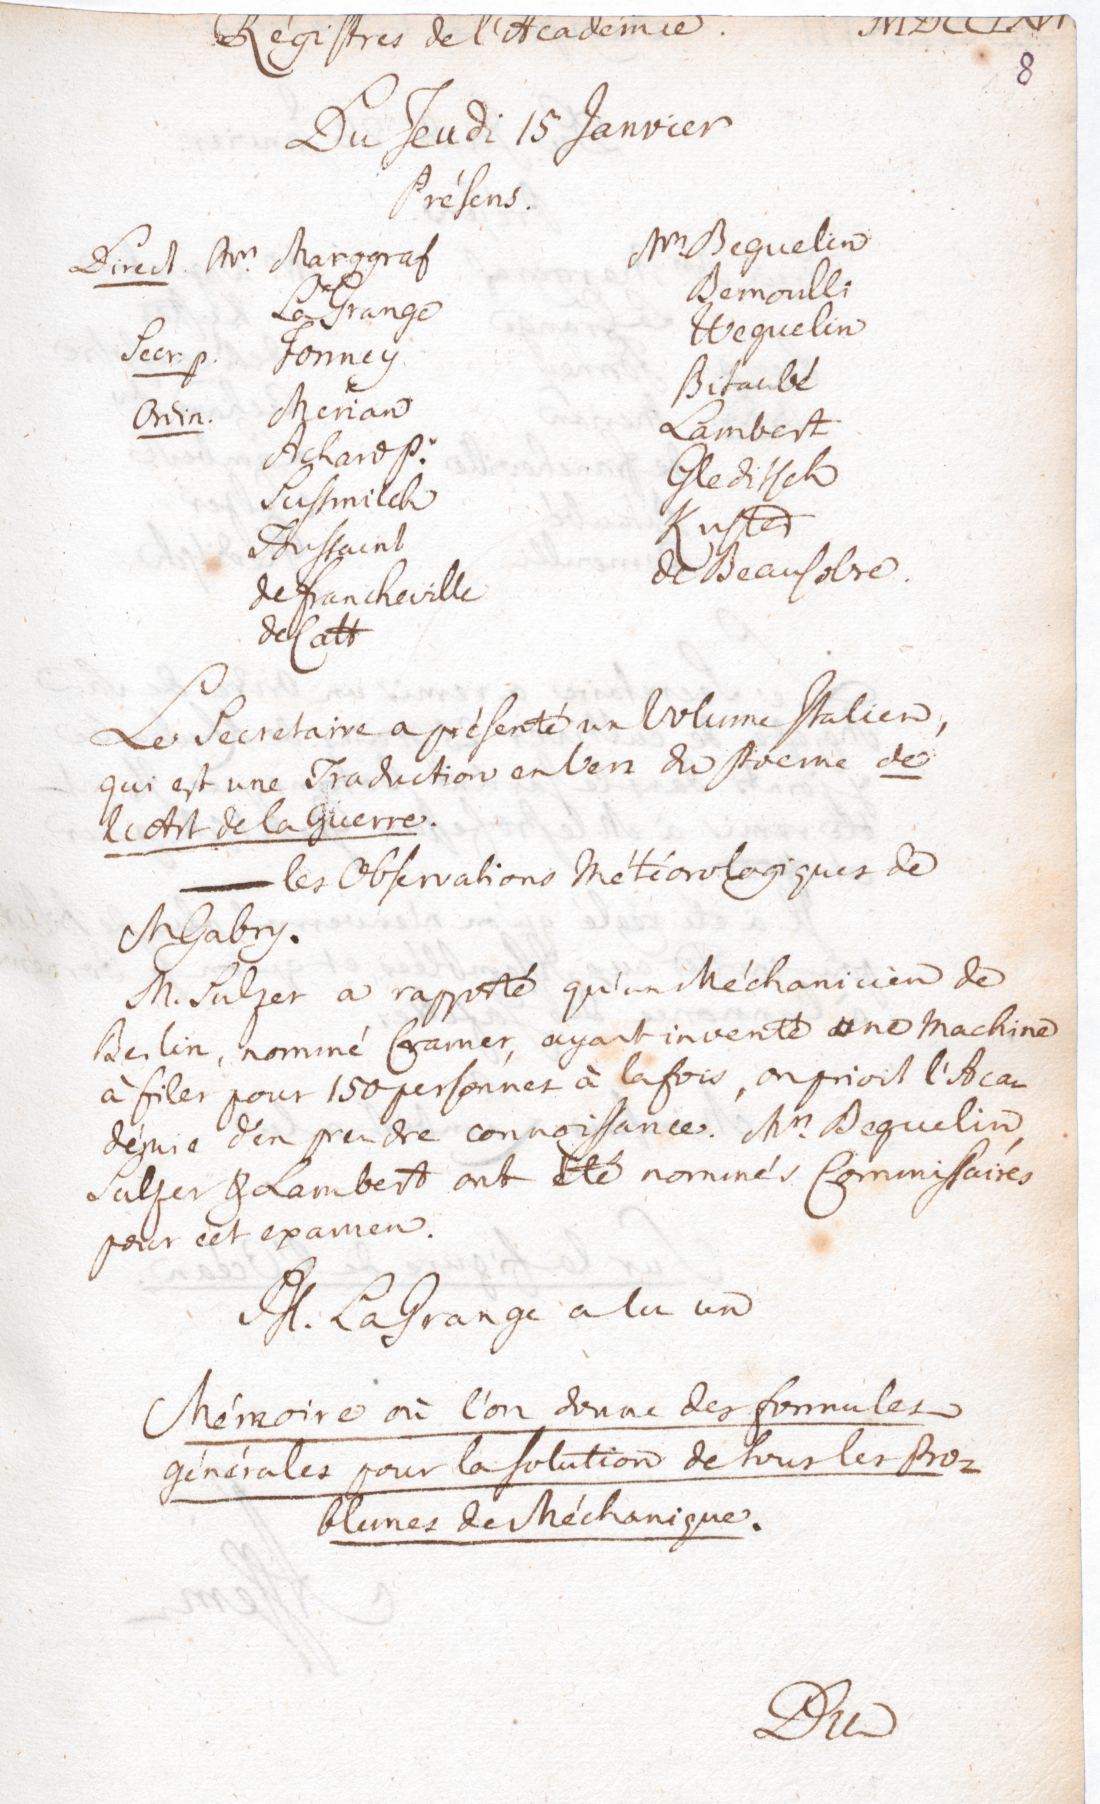 Régistres de l'Academie.
8
Du Jeudi 15 Janvier
Présens.
Direct. Mrs. Marggraf
La Grange
Secr. p. Formey
Ordin. Merian
Achard P.
Sussmilch
Toussaint
de francheville
de Catt
Mrs. Beguelin
Bernoulli
Weguelin
Bitaubé
Lambert
Gleditsch
Kuster
de Beausobre.
Le Secretaire a présenté un Volume Italien,
qui est une Traduction en Vers du Poeme de
l'Art de la Guerre.
— les Observations Météorologiques de
M Gabry.
M. Sulzer a rapporté qu'un Méchanicien de
Berlin, nommé Cramer, ayant inventé une Machine
à filer pour 150 personnes à la fois, on prioit l'Aca-
démie d'en prendre connoissance. Mrs. Beguelin,
Sulzer & Lambert ont été nommés Commissaires
pour cet examen.
M. La Grange a lu un
Mémoire où l'on donne des formules
générales pour la solution de tous les Pro-
blemes de Méchanique.
Du